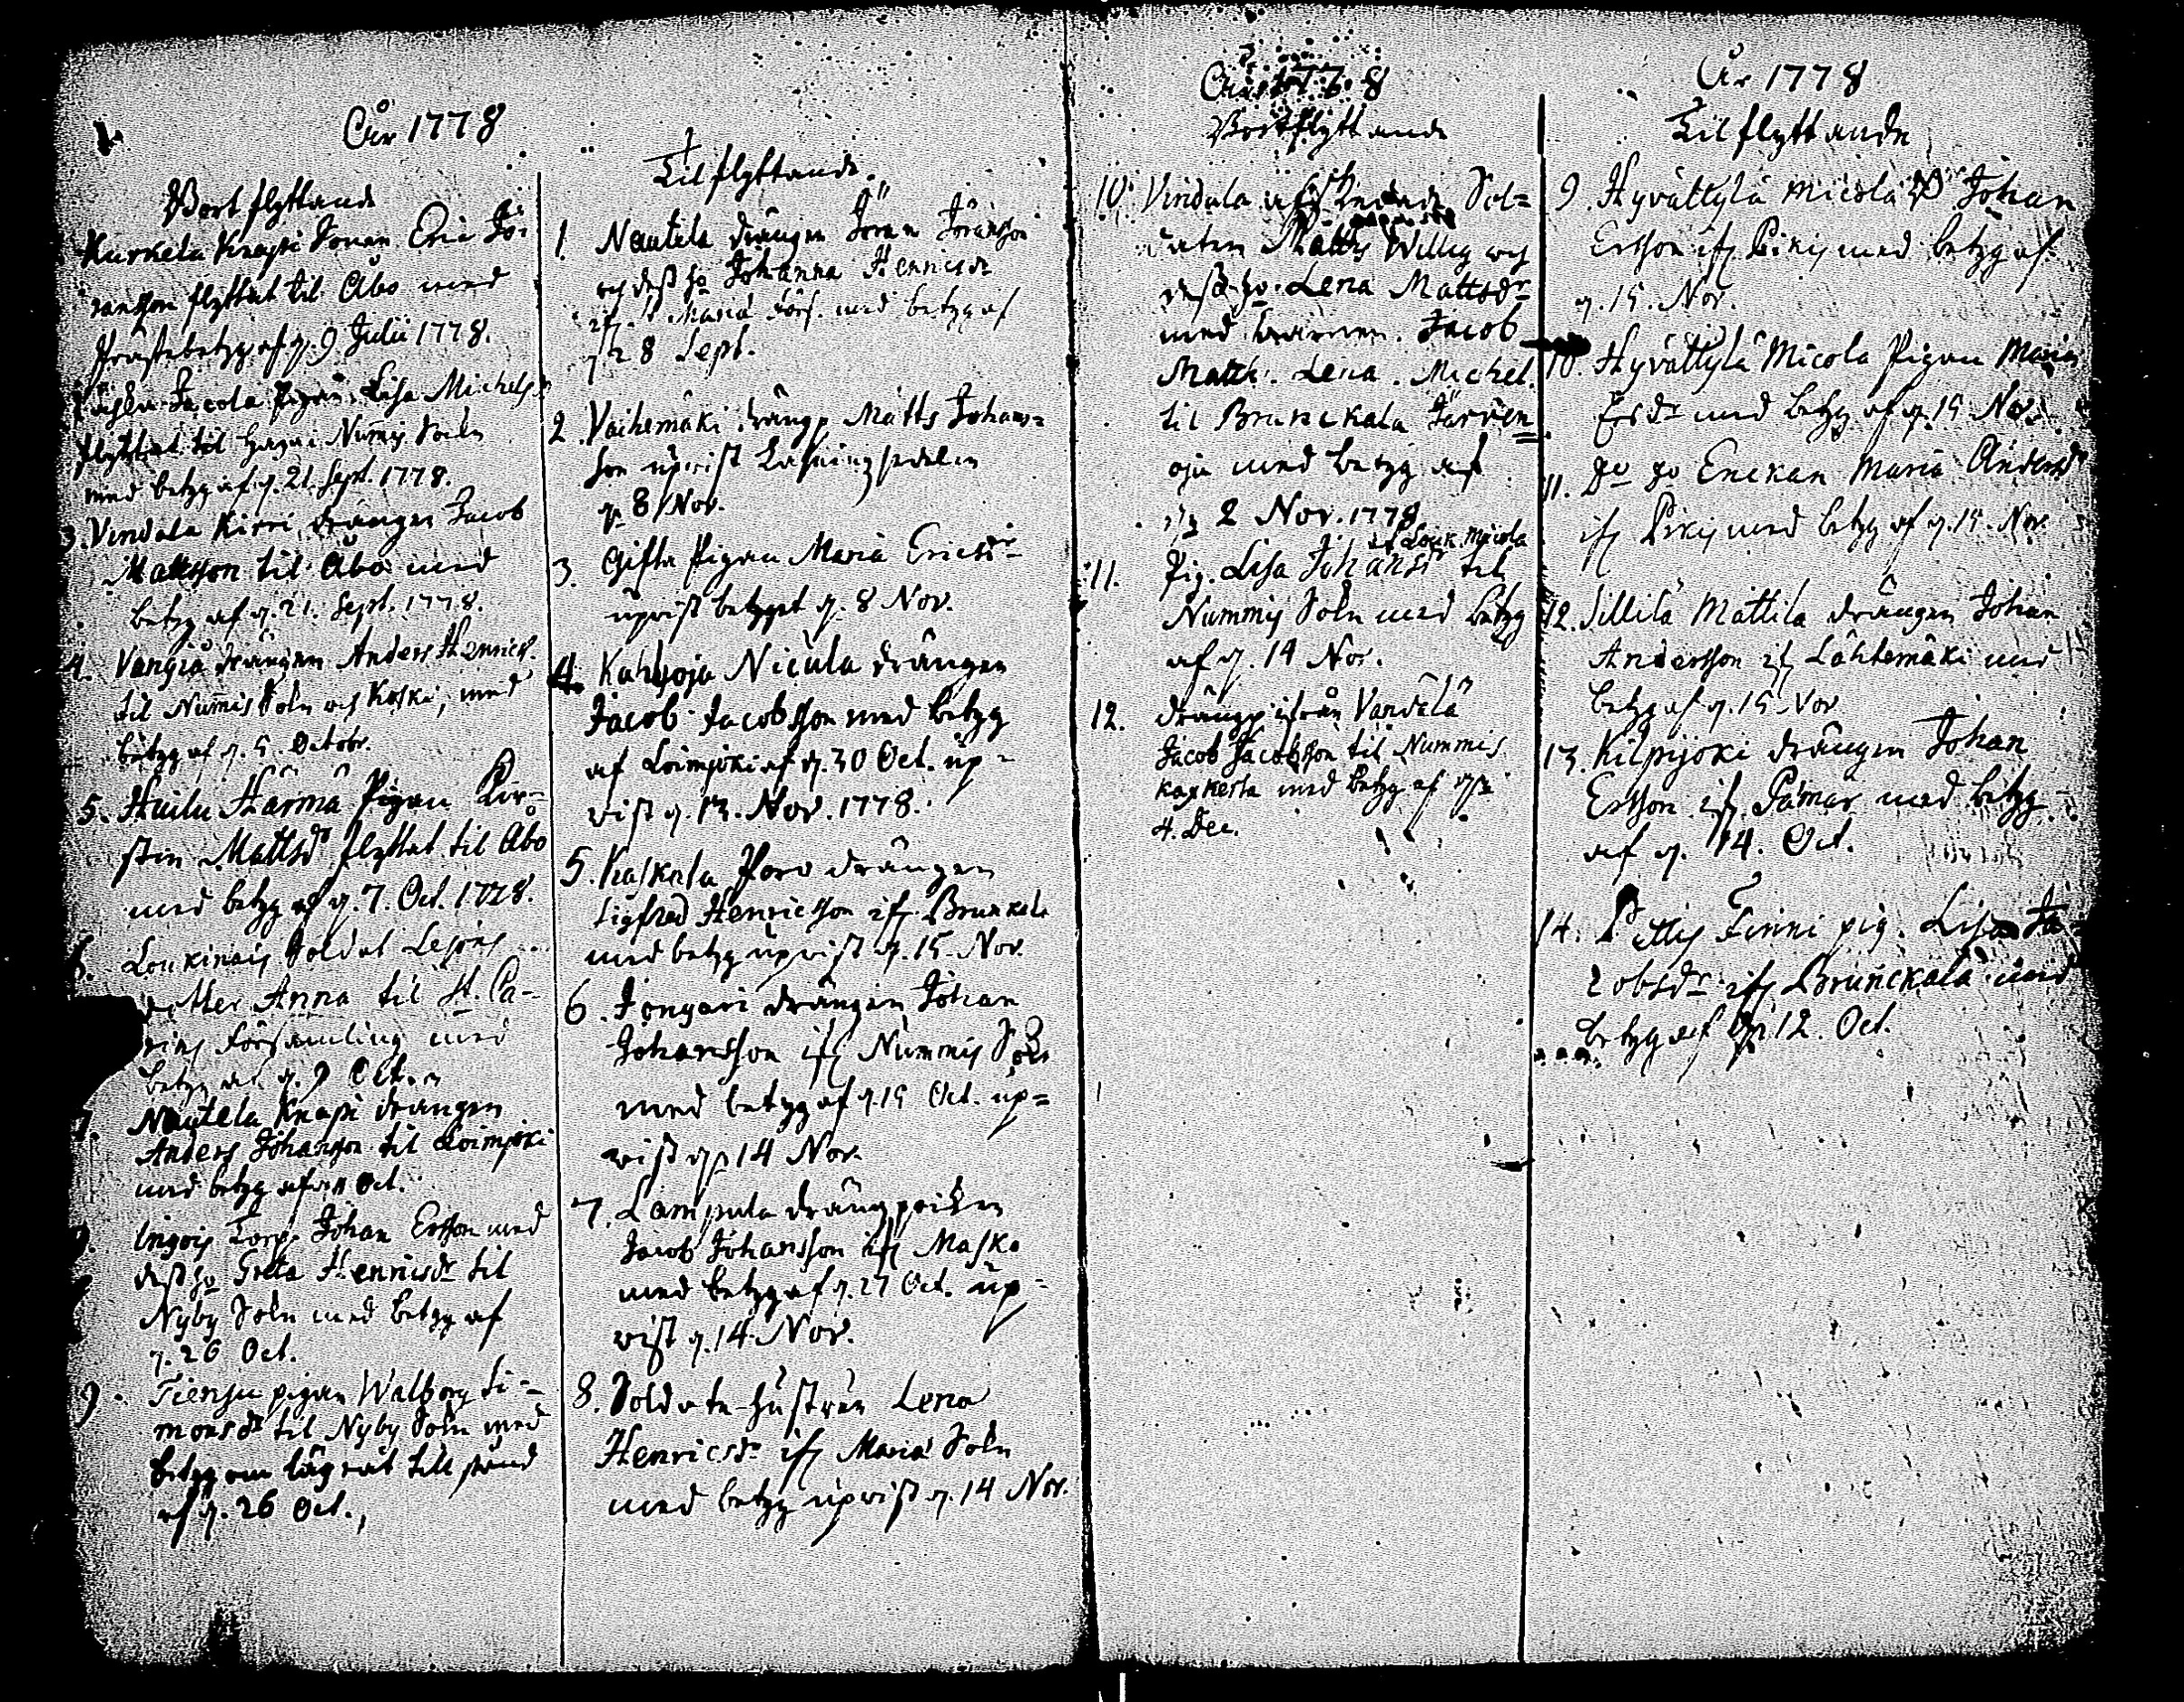 År 1778
Bortflyttande
Kurkela Knapi Sonen Eric Jö-
ransson flyttat til Åbo med
Prästebetyg af d. 9 Julii 1778.
Jacola Pigan Lisa Michelsdr
flyttat til Nummis Soln
med betyg af d. 21. Sept. 1778.
3. Vindala Kirri drängen Jacob
Mattsson til Åbo med
betyg af d. 21. Sept. 1778.
4. Vangiä drängen Anders Henrics.
til Nummis Soln och Koski, med
betyg af d. 5. Octobr.
5. Huilu Härmä Pigan Kir-
stin Mattsdr flyttat til Åbo
med betyg af d. 7. Oct. 1778.
6. Loukinais Soldat
dotter Anna til St. Ca-
rins Församling med
betyg af d. 9 Oct.
7. Nautela Knapi drängen
Anders Johansson til Loimjoki
med betyg af Oct.
Ingois Torp. Johan Ersson med
dess ho Greta Henricsdr til
Nyby Soln med betyg af
d. 26 Oct.
9. Tiensu pigan Walborg Si-
monsdr til Nyby Soln med
betyg om lägrat tillstånd
af d. 26 Oct.
Tilflyttande.
1. Nautela drängen Jöran Jöransson
och dess ho Johanna Henricsdr
ifr. St Mariä Förs. med betyg af
d 28 Sept.
2. Vaihemäki drängen Matts Johans-
son upvist Läsningssedelen
d. 8 Nov.
3. Gifta Pigan Maria Ericsdr
upvist betyget d. 8 Nov.
4. Karhoja Nicula drängen
Jacob Jacobsson med betyg
af Loimjoki af d. 30 Oct. up-
vist d. 13. Nov. 1778.
5. Kaskala Poro drängen
Sigfred Henricsson ifr. Brunkala
med betyg upvist d. 15. Nov.
6. Jongari drängen Johan
Johansson ifr Nummis Soln
med betyg af d. 15 Oct. up-
vist d. 14 Nov.
7. Lampula drängpoiken
Jacob Johansson ifr Masko
med betyg af d. 27 Oct. up-
vist d. 14. Nov.
8. Soldate-hustrun Lena
Henricsdr ifr Mariä Soln
med betyg upvist d. 14 Nov.
År 1778
Bortflyttande
10. Vindala Sol-
daten Matts Willig och
dess ho Lena Mattsdr
med barnen. Jacob
Matth. Lena. Michel.
til Brunckala Järven-
oja med betyg af
d 2 Nov. 1778
af Louk. Micola
11. Pig. Lisa Johansdr til
Nummis Soln med betyg
af d. 14 Nov.
12. drängen ifrån Vandala
Jacob Jacobsson til Nummis
Kaxkerta med betyg af d
4. Dec.
År 1778
Tilflyttande
9. Hyvättylä Micola Johan
Ersson ifr Pikis med betyg af
d. 15. Nov.
10. Hyvättylä Micola Pigan Maria
Ersdr med betyg af d. 15 Nov.
11. Do do Enckan Maria Andersdr
ifr Pikis med betyg af d. 15. Nov.
12. Sillilä Mattila drängen Johan
Andersson ifr Lähtemäki med
betyg af d. 15 Nov
13. Kilpijoki drängen Johan
Ersson ifr. Pämar med betyg
af d. 14. Oct.
14. Pettis Finni pig. Lisa Ja-
cobsdr ifr Brunckala med
betyg af d. 12. Oct.